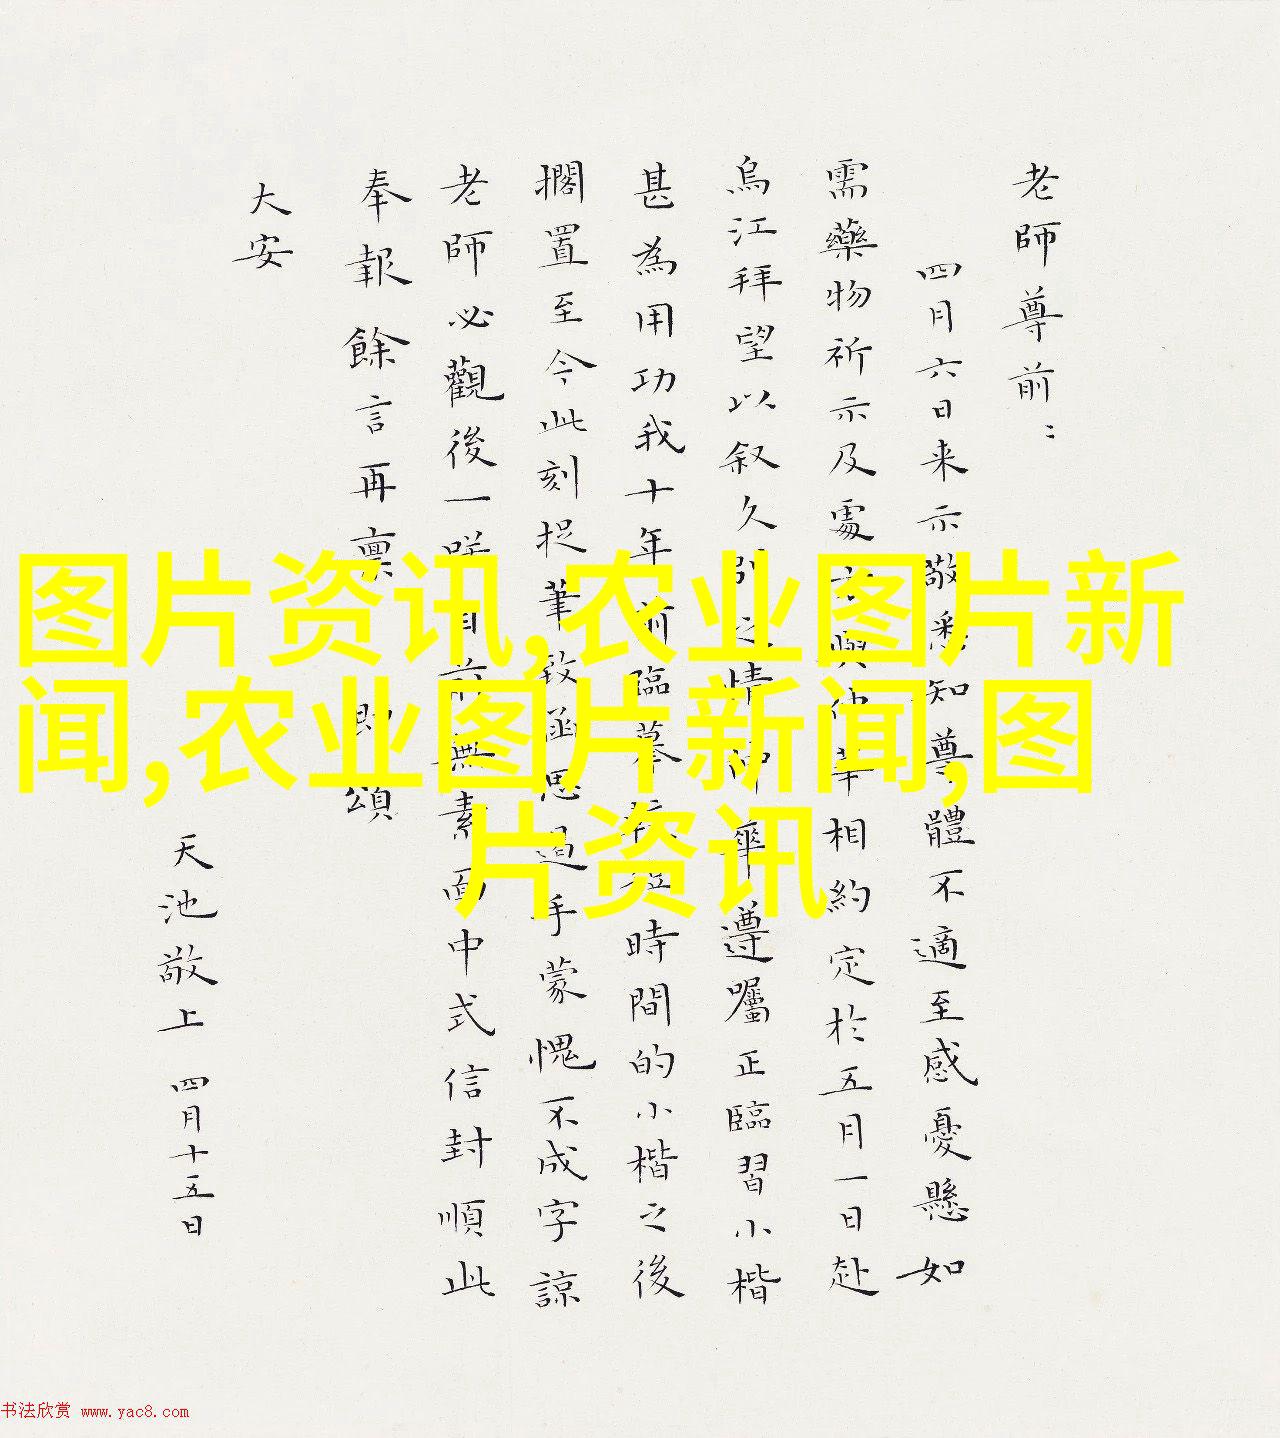 老師尊前：
四月六日来示敬悉知尊體不適至感憂懸如
需藥物祈示及處方與仲華相約定於五月一日赴
烏江拜望以叙久別之情仲華遵囑正臨習小楷
甚為用功我十年前臨摹短時間的小楷之後
擱置至今此刻捉筆致函思過手蒙愧不成字諒
老師必觀後一咲目前無素面中式信封順此
奉報餘言再禀 即頌
大安
天池敬上 四月十五日
图片资讯,农业图片新
闻,农业图片新闻,图
片资讯
书法欣赏 www.yac8.com